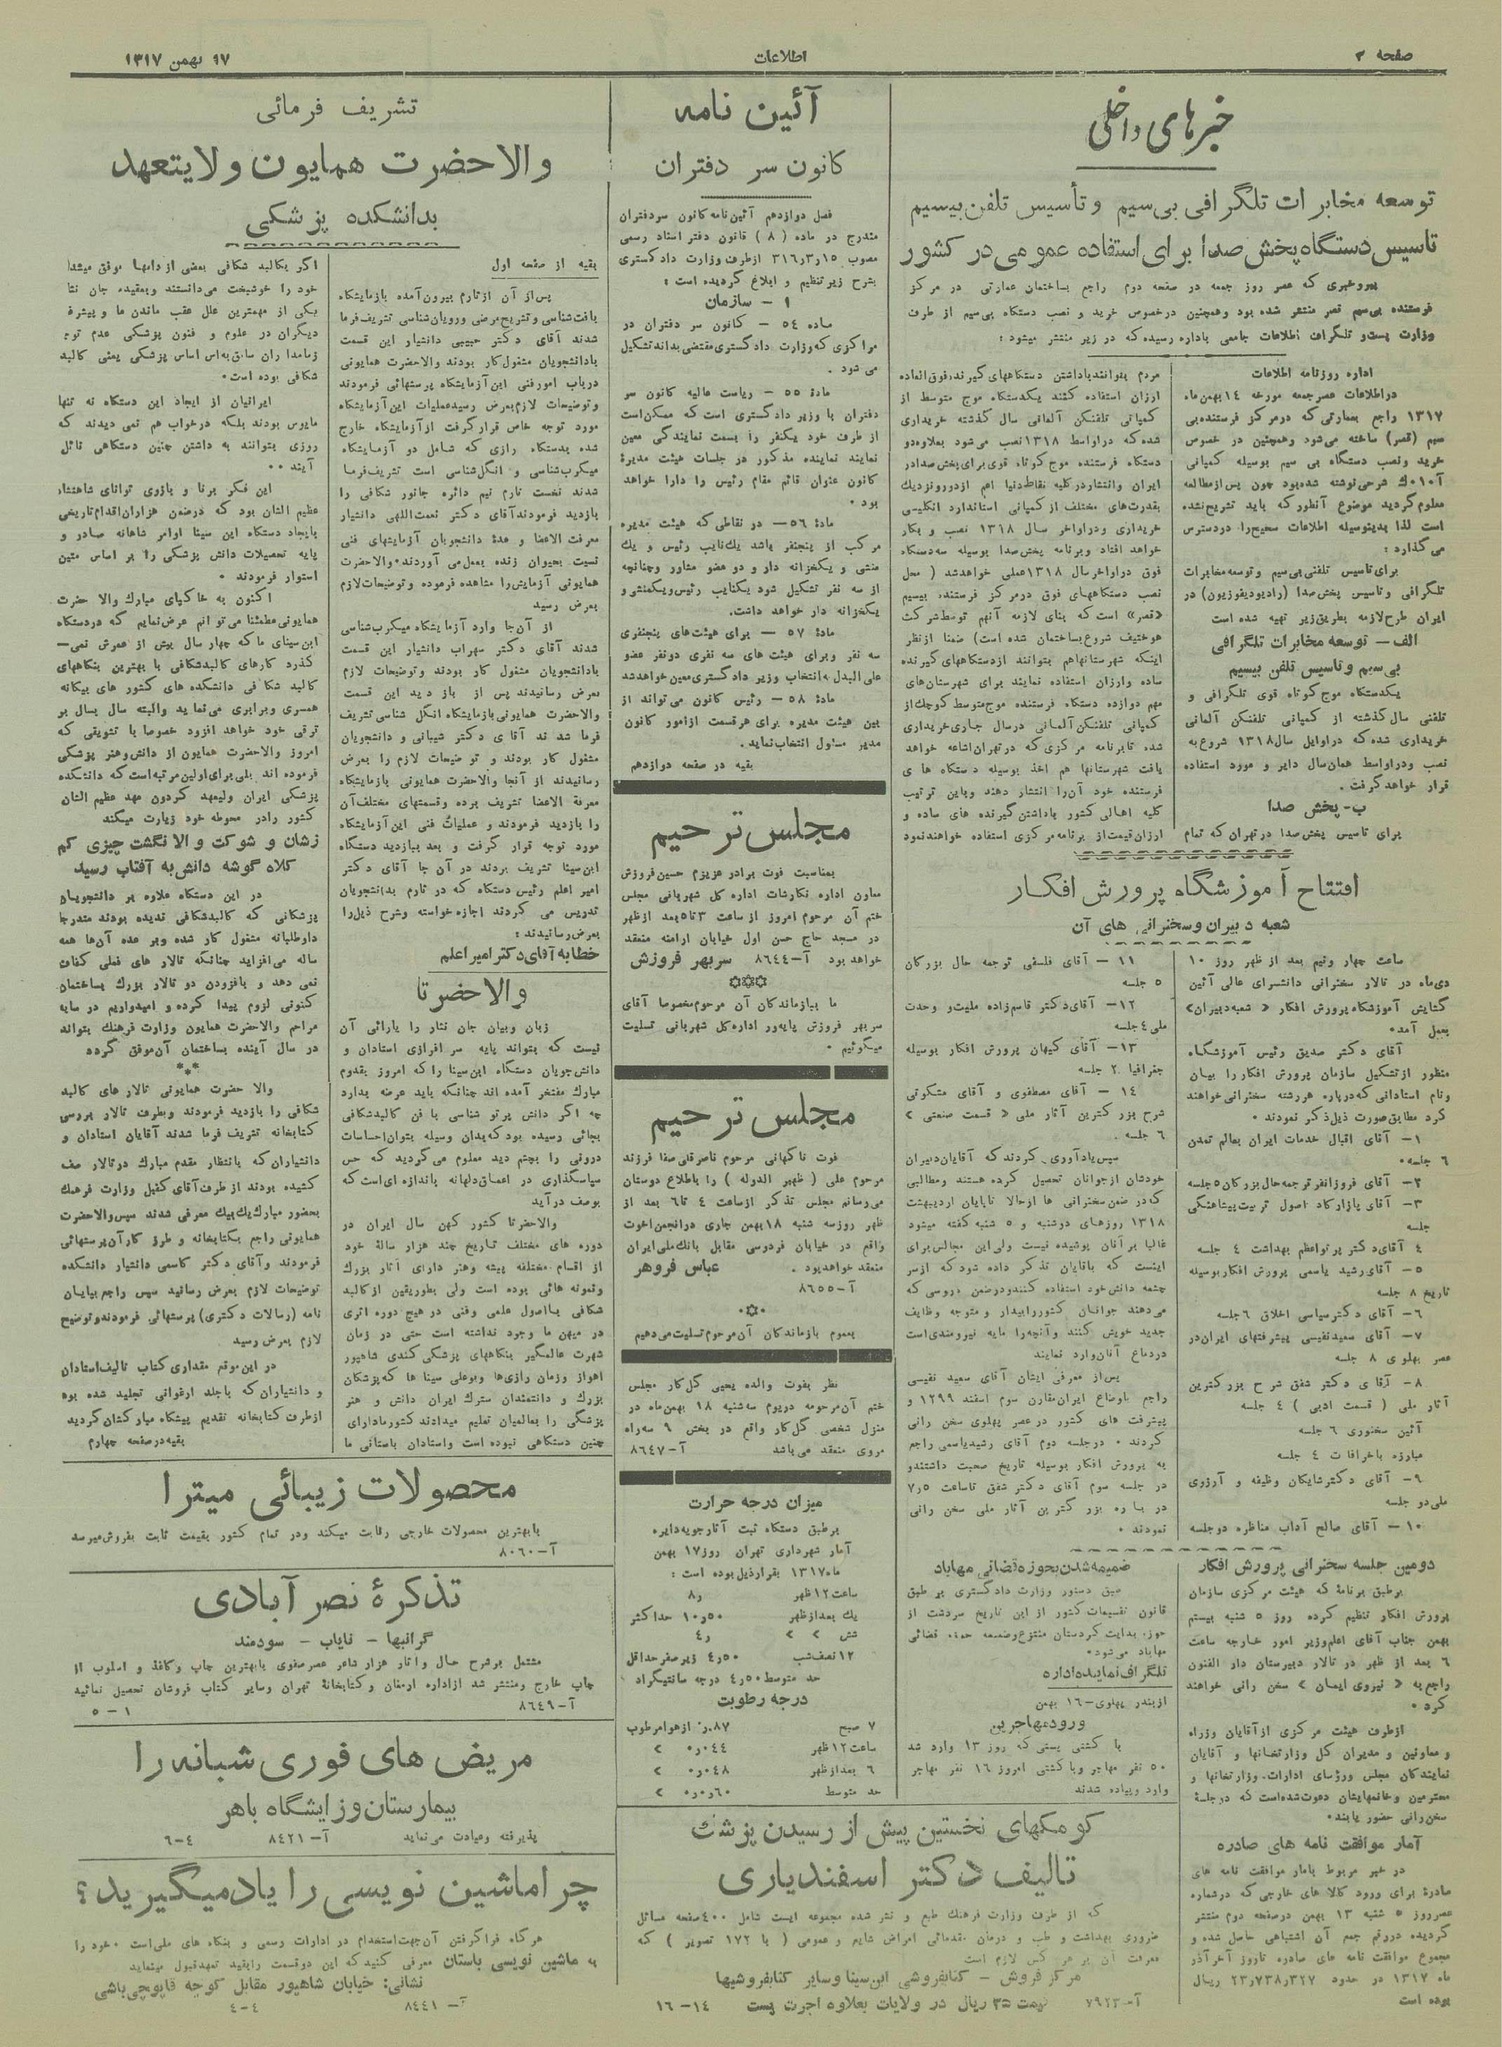 صفحه ۲
اطلاعات
۱۷ بهمن ۱۳۱۷
خبرهای داخلی
توسعه مخابرات تلگرافی بی‌سیم وتأسیس تلفن بیسیم
تاسیس دستگاه پخش صدا برای استفاده عمومی در کشور
پیروخبری که عصر روز جمعه در صفحه دوم راجع بساختمان عمارتی در مرکز
فرستنده بی‌سیم قصر منتشر شده بود وهمچنین درخصوص خرید و نصب دستگاه بی‌سیم از طرف
وزارت پست و تلگراف اطلاعات جامعی باداره رسیده که در زیر منتشر میشود :
اداره روزنامه اطلاعات
دراطلاعات عصرجمعه مورخه ۱۴ بهمن ماه
۱۳۱۷ راجع بعمارتی که درمرکز فرستنده بی
سیم (قصر) ساخته می‌شود وهمچنین در خصوص
خرید ونصب دستگاه بی سیم بوسیله کمپانی
شرحی نوشته شده بود چون پس از مطالعه
معلوم گردید موضوع آنطور که باید تشریح نشده
است لذا بدینوسیله اطلاعات صحیح را دردسترس
می گذارد :
برای تاسیس تلفنی بی‌سیم و توسعه مخابرات
تلگرافی وتاسیس پخش صدا (رادیودیفوزیون) در
ایران طرح لازمه بطریق زیر تهیه شده است
الف – توسعه مخابرات تلگرافی
بی‌سیم وتاسیس تلفن بیسیم
یکدستگاه موج کوتاه قوی تلگرافی و
تلفنی سال گذشته از کمپانی تلفنکن آلمانی
خریداری شده که دراوایل سال ۱۳۱۸ شروع به
نصب ودراواسط همان سال دایر و مورد استفاده
قرار خواهد گرفت .
ب- پخش صدا
برای تاسیس پخش صدا در تهران که تمام
مردم بتوانند باداشتن دستگاههای گیرنده فوق العاده
ارزان استفاده کنند یکدستگاه موج متوسط از
کمپانی تلفنکن آلمانی سال گذشته خریداری
شده که دراواسط ۱۳۱۸ نصب می‌شود بعلاوه دو
دستگاه فرستنده موج کوتاه قوی برای پخش صدا در
ایران وانتشار در کلیه نقاط دنیا اعم از دور و نزدیک
بقدرت‌های مختلف از کمپانی استاندارد انگلیسی
خریداری ودراواخر سال ۱۳۱۸ نصب و بکار
خواهد افتاد وبرنامه پخش صدا بوسیله سه دستگاه
فوق دراواخر سال ۱۳۱۸ عملی خواهد شد ( محل
نصب دستگاههای فوق درمرکز فرستنده بیسیم
«قصر» است که بنای لازمه آنهم توسط شرکت
هوختیف شروع بساختمان شده است) ضمنا از نظر
اینکه شهرستانها هم بتوانند از دستگاههای گیرنده
ساده وارزان استفاده نمایند برای شهرستان‌های
مهم دوازده دستگاه فرستنده موج متوسط کوچک از
کمپانی تلفنکن آلمانی درسال جاری خریداری
شده تا برنامه مرکزی که در تهران اشاعه خواهد
یافت شهرستانها هم اخذ بوسیله دستگاه های
فرستنده خود آن‌را انتشار دهند وباین ترتیب
کلیه اهالی کشور باداشتن گیرنده های ساده و
ارزان قیمت از برنامه مرکزی استفاده خواهند نمود
افتتاح آموزشگاه پرورش افکار
شعبه دبیران و سخنرانی های آن
ساعت چهار ونیم بعد از ظهر روز ۱۰
دی‌ماه در تالار سخنرانی دانشسرای عالی آئین
گشایش آموزشگاه پرورش افکار « شعبه دبیران»
بعمل آمد.
آقای دکتر صدیق رئیس آموزشگاه
منظور از تشکیل سازمان پرورش افکار را بیان
ونام استادانی که درباره هر رشته سخنرانی خواهند
کرد مطابق صورت ذیل ذکر نمودند .
۱– آقای اقبال خدمات ایران بعالم تمدن
۶ جلسه .
۲– آقای فروزانفر ترجمه حال بزرگان ۵ جلسه
۳– آقای بازارگاد اصول تربیت پیشاهنگی
جلسه
۴ آقای دکتر پرتو اعظم بهداشت ۴ جلسه
۵– آقای رشید یاسمی پرورش افکار بوسیله
تاریخ ۸ جلسه
۶– آقای دکتر سیاسی اخلاق ۶ جلسه
۷– آقای سعید نفیسی پیشرفتهای ایران در
عصر پهلوی ۸ جلسه
۸– آقای دکتر شفق شرح بزرگترین
آثار ملی ( قسمت ادبی ) ۴ جلسه
آئین سخنوری ۶ جلسه
مبارزه باخرافات ۴ جلسه
۹– آقای دکتر شایگان وظیفه و آرزوی
ملی دو جلسه
۱۰– آقای صالح آداب مناظره دو جلسه
۱۱ – آقای فلسفی ترجمه حال بزرگان
۵ جلسه
۱۲– آقای دکتر قاسم‌زاده ملیت و وحدت
ملی ۴ جلسه
۱۳– آقای کیهان پرورش افکار بوسیله
جغرافیا ۲ جلسه
۱۴ – آقای مصطفوی و آقای مشکوتی
شرح بزرگترین آثار ملی « قسمت صنعتی »
۶ جلسه .
سپس یادآوری کردند که آقایان دبیران
خودشان از جوانان تحصیل کرده هستند ومطالبی
که در ضمن سخنرانی ها از حالا تا پایان اردیبهشت
۱۳۱۸ روزهای دوشنبه و ۵ شنبه گفته میشود
غالبا بر آقان پوشیده نیست ولی این مجالس برای
اینست که باقایان تذکر داده شود که از سر
چشمه دانش خود استفاده کنند و در ضمن دروسی که
می‌دهند جوانان کشور را بیدار و متوجه وظایف
جدید خویش کنند وآنچه را مایه نیرومندی است
دردماغ آنان وارد نمایند
پس از معرفی ایشان آقای سعید نفیسی
راجع باوضاع ایران مقارن سوم اسفند ۱۲۹۹ و
پیشرفت های کشور در عصر پهلوی سخن رانی
کردند . در جلسه دوم آقای رشید یاسمی راجع
به پرورش افکار بوسیله تاریخ صحبت داشتند و
در جلسه سوم آقای دکتر شفق تا ساعت ۷٫۵
در باره بزرگترین آثار ملی سخن رانی
نمودند .
دومین جلسه سخنرانی پرورش افکار
برطبق برنامهٔ که هیئت مرکزی سازمان
پرورش افکار تنظیم کرده روز ۵ شنبه بیستم
بهمن جناب آقای اعلم وزیر امور خارجه ساعت
۶ بعد از ظهر در تالار دبیرستان دار الفنون
راجع به « نیروی ایمان » سخن رانی خواهند
کرد .
ازطرف هیئت مرکزی از آقایان وزراء
و معاونین و مدیران کل وزارتخانها و آقایان
نمایندگان مجلس ورؤسای ادارات وزارتخانها و
محترمین وخانمهایشان دعوت شده است که در جلسهٔ
سخن رانی حضور یابند.
آمار موافقت نامه های صادره
در خبر مربوط بامار موافقت نامه های
صادرهٔ برای ورود کالا های خارجی که درشماره
عصرروز ۵ شنبه ۱۳ بهمن در صفحه دوم منتشر
گردیده در رقم جمع آن اشتباهی حاصل شده و
مجموع موافقت نامه های صادره تا روز آخر آذر
ماه ۱۳۱۷ در حدود ۲۳٫۷۳۸٫۳۲۷ ریال
بوده است
ضمیمه شدن بحوزه قضائی مهاباد
طبق دستور وزارت دادگستری بر طبق
قانون تقسیمات کشور از این تاریخ سردشت از
حوزه بدایت کردستان منتزع وضمیمه حوزه قضائی
مهاباد می‌شود.
تلگراف نماینده اداره
از بندر پهلوی–۱۶ بهمن
ورود مهاجرین
با کشتی پستی که روز ۱۳ وارد شد
۵۰ نفر مهاجر وباکشتی امروز ۱۶ نفر مهاجر
وارد وپیاده شدند
آئین نامه
کانون سر دفتران
فصل دوازدهم آئین‌نامه کانون سردفتران
مندرج در ماده ( ۸ ) قانون دفتر اسناد رسمی
مصوب ۱۵ر۳ر۳۱۶ ازطرف وزارت دادگستری
بشرح زیر تنظیم و ابلاغ گردیده است :
۱ – سازمان
ماده ۵۴ – کانون سر دفتران در
مراکزی که وزارت دادگستری مقتضی بداند تشکیل
می شود .
مادهٔ ۵۵ – ریاست عالیه کانون سر
دفتران با وزیر دادگستری است که ممکن است
از طرف خود یکنفر را بسمت نمایندگی معین
نمایند نماینده مذکور در جلسات هیئت مدیرهٔ
کانون عنوان قائم مقام رئیس را دارا خواهد
بود .
مادهٔ ۵۶– در نقاطی که هیئت مدیره
مرکب از پنجنفر باشد یک‌نایب رئیس و یک
منشی و یکخزانه دار و دو عضو مشاور وچنانچه
از سه نفر تشکیل شود یکنایب رئیس و یکمنشی و
یکخزانه دار خواهد داشت.
مادهٔ ۵۷ – برای هیئت‌های پنجنفری
سه نفر وبرای هیئت های سه نفری دونفر عضو
علی البدل بانتخاب وزیر دادگستری معین خواهد شد
مادهٔ ۵۸ – رئیس کانون می‌تواند از
بین هیئت مدیره برای هر قسمت از امور کانون
مدیر مسئول انتخاب نماید.
بقیه در صفحه دوازدهم
مجلس ترحیم
بمناسبت فوت برادر عزیزم حسین فروزش
معاون اداره نگارشات اداره کل شهربانی مجلس
ختم آن مرحوم امروز از ساعت ۳ تا ۵ بعد از ظهر
در مسجد حاج حسن اول خیابان ارامنه منعقد
خواهد بود آ–۸۶۴۴ سربهر فروزش
ما ببازماندگان آن مرحوم مخصوصا آقای
سربهر فروزش پایه‌ور اداره کل شهربانی تسلیت
میگوئیم .
مجلس ترحیم
فوت ناگهانی مرحوم ناصرقلی صفا فرزند
مرحوم علی ( ظهیر الدوله ) را باطلاع دوستان
می‌رسانم مجلس تذکر از ساعت ۴ تا ۶ بعد از
ظهر روز سه شنبه ۱۸ بهمن جاری درانجمن اخوت
واقع در خیابان فردوسی مقابل بانک ملی ایران
منعقد خواهد بود . عباس فروهر
آ–۸۶۵۵
بعموم بازماندگان آن مرحوم تسلیت می‌دهیم
نظر بفوت والده یحیی گل‌کار مجلس
ختم آن مرحومه در یوم سه‌شنبه ۱۸ بهمن ماه در
منزل شخصی گل‌کار واقع در بخش ۹ سه راه
مروی منعقد می باشد آ–۸۶۴۷
میزان درجه حرارت
برطبق دستگاه ثبت آثار جویه دایره
آمار شهرداری تهران روز ۱۷ بهمن
ماه ۱۳۱۷ بقرار ذیل بوده است :
ساعت ۱۲ ظهر ۸ر
یک بعدازظهر ۱۰ر۵۰ حداکثر
شش » » ۴ر
۱۲ نصف شب ۴ر۵۰ زیر صفر حداقل
حد متوسط ۴ر۵۰ درجه سانتیگراد
درجه رطوبت
۷ صبح ۰ر۸۷ از هوا مرطوب
ساعت ۱۲ ظهر ۰ر۴۴ »
۶ بعدازظهر ۰ر۴۸ »
حد متوسط ۰ر۶۰ »
تشریف فرمائی
والاحضرت همایون ولایتعهد
بدانشکده پزشکی
بقیه از صفحه اول
پس از آن ازتارم بیرون آمده بازمایشگاه
بافت‌شناسی وتشریح مرضی ورویان‌شناسی تشریف‌فرما
شدند آقای دکتر حبیبی دانشیار این قسمت
بادانشجویان مشغول کار بودند والاحضرت همایونی
درباب امور فنی این آزمایشگاه پرسشهائی فرمودند
وتوضیحات لازم بعرض رسید عملیات این آزمایشگاه
مورد توجه خاص قرار گرفت از آزمایشگاه خارج
شده بدستگاه رازی که شامل دو آزمایشگاه
میکرب‌شناسی و انگل‌شناسی است تشریف‌فرما
شدند نخست تارم نیم دائره جانور شکافی را
بازدید فرمودند آقای دکتر نعمت‌اللهی دانشیار
معرفت الاعضا و عدهٔ دانشجویان آزمایشهای فنی
نسبت بحیوان زنده بعمل می آوردند. والاحضرت
همایونی آزمایش را مشاهده فرموده وتوضیحات لازم
بعرض رسید
از آن‌جا وارد آزمایشگاه میکرب‌شناسی
شدند آقای دکتر سهراب دانشیار این قسمت
بادانشجویان مشغول کار بودند وتوضیحات لازم
بعرض رسانیدند پس از باز دید این قسمت
والاحضرت همایونی بازمایشگاه انگل شناسی تشریف
فرما شدند آقای دکتر شیبانی و دانشجویان
مشغول کار بودند و توضیحات لازم را بعرض
رسانیدند از آنجا والاحضرت همایونی بازمایشگاه
معرفة الاعضا تشریف برده وقسمتهای مختلف آن
را بازدید فرمودند و عملیات فنی این آزمایشگاه
مورد توجه قرار گرفت و بعد ببازدید دستگاه
ابن‌سینا تشریف بردند در آن جا آقای دکتر
امیر اعلم رئیس دستگاه که در تارم بدانشجویان
تدریس می کردند اجازه خواسته وشرح ذیل را
بعرض رسانیدند :
خطابه آقای دکتر امیر اعلم
والاحضرتا
زبان وبیان جان نثار را یارائی آن
نیست که بتواند پایه سر افرازی استادان و
دانش‌جویان دستگاه ابن‌سینا را که امروز بقدوم
مبارک مفتخر آمده اند چنانکه باید عرضه بدارد
چه اگر دانش پرتو شناسی با فن کالبدشکافی
بجائی رسیده بود که بدان وسیله بتوان احساسات
درونی را بچشم دید معلوم می‌گردید که حس
سپاسگذاری در اعماق دلهابه پاندازه ای است که
بوصف درآید
والاحضرتا کشور کهن سال ایران در
دوره های مختلف تاریخ چند هزار سالهٔ خود
از اقسام مختلفه پیشه وهنر دارای آثار بزرگ
ونمونه هائی بوده است ولی بطوریقین از کالبد
شکافی با اصول علمی وفنی در هیچ دوره اثری
در میهن ما وجود نداشته است حتی در زمان
شهرت عالمگیر بنگاههای پزشکی کندی شاهپور
اهواز وزمان رازی‌ها وبوعلی سینا ها که پزشکان
بزرگ و دانشمندان سترک ایران دانش و هنر
پزشکی را بعالمیان تعلیم میدادند کشور ما دارای
چنین دستگاهی نبوده است واستادان باستانی ما
اگر بکالبد شکافی بعضی از دامها موفق میشدند
خود را خوشبخت می‌دانستند وبعقیده جان نثار
یکی از مهمترین علل عقب ماندن ما و پیشرفت
دیگران در علوم و فنون پزشکی عدم توجه
زمامداران سابق به‌اس اساس پزشکی یعنی کالبد
شکافی بوده است .
ایرانیان از ایجاد این دستگاه نه تنها
مایوس بودند بلکه درخواب هم نمی دیدند که
روزی بتوانند به داشتن چنین دستگاهی نائل
آیند ..
این فکر برنا و بازوی توانای شاهنشاه
عظیم الشان بود که درضمن هزاران اقدام تاریخی
بایجاد دستگاه ابن سینا اوامر شاهانه صادر و
پایه تحصیلات دانش پزشکی را بر اساس متین
استوار فرمودند .
اکنون به خاکپای مبارک والا حضرت
همایونی مطمئنا می توانم عرض نمایم که دردستگاه
ابن‌سینای ما که چهار سال بیش از عمرش نمی–
گذرد کارهای کالبدشکافی با بهترین بنگاههای
کالبد شکافی دانشکده های کشور های بیگانه
همسری وبرابری می‌نماید والبته سال بسال بر
ترقی خود خواهد افزود خصوصا با تشویقی که
امروز والاحضرت همایون از دانش وهنر پزشکی
فرموده اند بلی برای اولین مرتبه است که دانشکده
پزشکی ایران ولیعهد گردون مهد عظیم الشان
کشور رادر محوطه خود زیارت میکند
زشان و شوکت والا نگشت چیزی کم
کلاه گوشه دانش به آفتاب رسید
در این دستگاه علاوه بر دانشجویان
پزشکانی که کالبدشکافی ندیده بودند متدرجا
داوطلبانه مشغول کار شده وبر عده آن‌ها همه
ساله می‌افزاید چنانکه تالار های فعلی کفایت
نمی دهد و بافزودن دو تالار بزرگ بساختمان
کنونی لزوم پیدا کرده و امیدواریم در سایه
مراحم والاحضرت همایون وزارت فرهنگ بتواند
در سال آینده بساختمان آن موفق گردد
***
والا حضرت همایونی تالار های کالبد
شکافی را بازدید فرمودند وبطرف تالار بررسی
کتابخانه تشریف فرما شدند آقایان استادان و
دانشیاران که بانتظار مقدم مبارک درتالار صف
کشیده بودند از طرف آقای کفیل وزارت فرهنگ
بحضور مبارک یک بیک معرفی شدند سپس والاحضرت
همایونی راجع بکتابخانه و طرز کارآن پرسشهائی
فرمودند وآقای دکتر کاسمی دانشیار دانشکده
توضیحات لازم بعرض رسانید سپس راجع بپایان
نامه (رسالات دکتری) پرسشهائی فرمودند وتوضیح
لازم بعرض رسید
در این موقع مقداری کتاب تالیف استادان
و دانشیاران که باجلد ارغوانی تجلید شده بود
ازطرف کتابخانه تقدیم پیشگاه مبارکشان گردید
بقیه در صفحه چهارم
محصولات زیبائی میترا
بابهترین محصولات خارجی رقابت میکند ودر تمام کشور بقیمت ثابت بفروش میرسد
آ–۸۰۶۰
تذکرهٔ نصر آبادی
گرانبها – نایاب – سودمند
مشتمل برشرح حال وآثار هزار شاعر عصرصفوی بابهترین چاپ وکاغذ و اسلوب از
چاپ خارج ومنتشر شد ازاداره ارمغان وکتابخانهٔ تهران وسایر کتاب فروشان تحصیل نمائید
آ–۸۶۴۹ ۱–۵
مریض های فوری شبانه را
بیمارستان وزایشگاه باهر
پذیرفته وعیادت می نماید آ–۸۴۲۱ ۴–۶
چرا ماشین نویسی را یاد میگیرید؟
هر گاه فراگرفتن آن جهت استخدام در ادارات رسمی و بنگاه های ملی است . خود را
به ماشین نویسی باستان معرفی کنید که این دوقسمت را بقید تعهد قبول مینماید
نشانی: خیابان شاهپور مقابل کوچه قاپوچی‌باشی
آ–۸۴۴۱ ۴–۴
کومکهای نخستین پیش از رسیدن پزشک
تالیف دکتر اسفندیاری
که از طرف وزارت فرهنگ طبع و نشر شده مجموعه ایست شامل ۴۰۰ صفحه مسائل
ضروری بهداشت و طب و درمان مقدماتی امراض شایع و عمومی ( با ۱۷۲ تصویر ) که
معرفت آن بر هر کس لازم است
مرکز فروش – کتابفروشی ابن سینا وسایر کتابفروشیها
آ–۷۹۲۳ قیمت ۳۵ ریال در ولایات بعلاوه اجرت پست ۱۴–۱۶